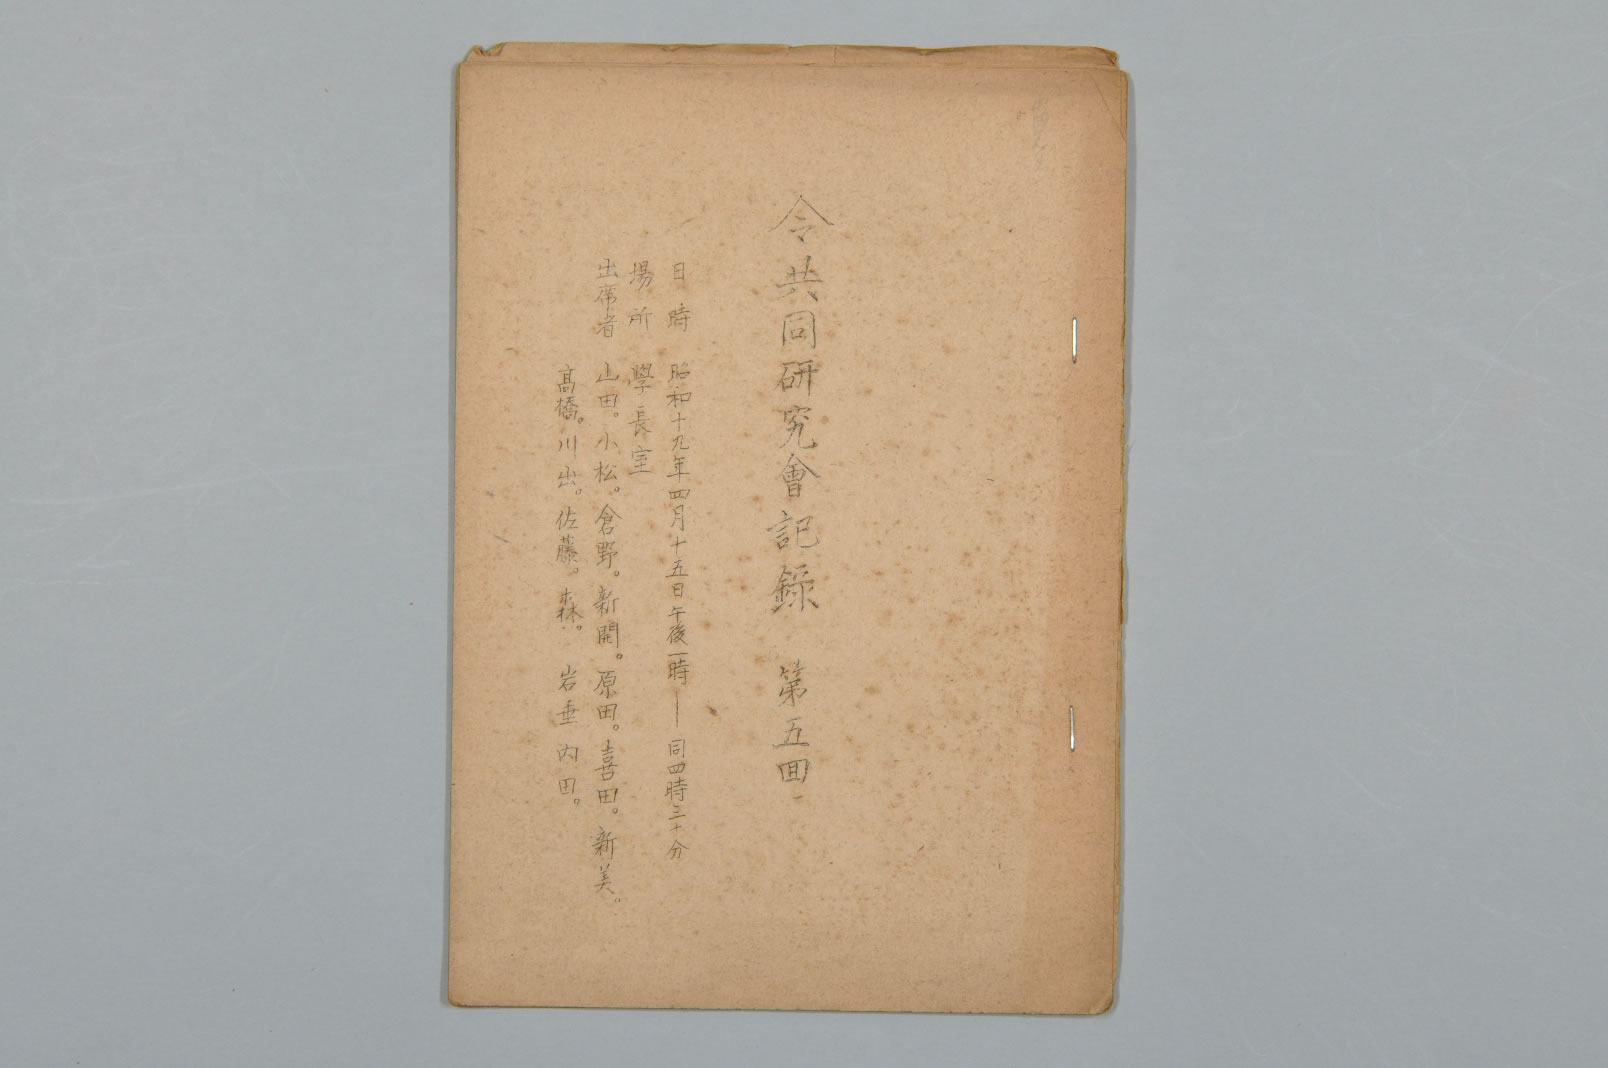 令共同研究會記錄　第五囬
日時　昭和十九年四月十五日午後一時——同四時三十分
場所　學長室
出席者　山田。小松。倉野。新開。原田。喜田。新美。
高橋。川出。佐藤。森。　岩垂　内田。